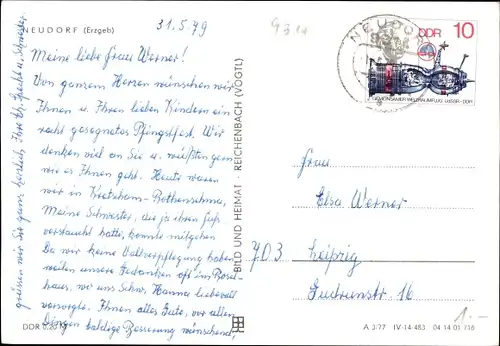 NEUDORF (Erzgeb)
31.5.79
Meine liebe Frau Werner!
Von ganzem Herzen wünschen wir
Ihnen u. Ihren lieben Kindern ein
recht gesegnetes Pfingstfest. Wir
denken viel an Sie u. wüßten gern
wie es Ihnen geht. Heute waren
wir in Kretscham-Rothensehma,
Meine Schwester, die ja ihren Fuß
verstaucht hatte, konnte mitgehen
Da wir keine Vollverpflegung haben
weilen unsere Gedanken oft im
haus, wo uns Schw. Hanna liebevoll
versorgte. Ihnen alles Gute, vor allen
Dingen baldige Besserung wünschend,
grüssen wir Sie ganz herzlich Ihre
u. Schwester
DDR 0,20 M
BILD UND HEIMAT · REICHENBACH (VOGTL)
NEUDORF
DDR 10
GEMEINSAMER WELTRAUMFLUG UdSSR-DDR
Frau
Elsa Werner
703 Leipzig
16
1.-
A 3/77 IV-14-483 04 14 01 716